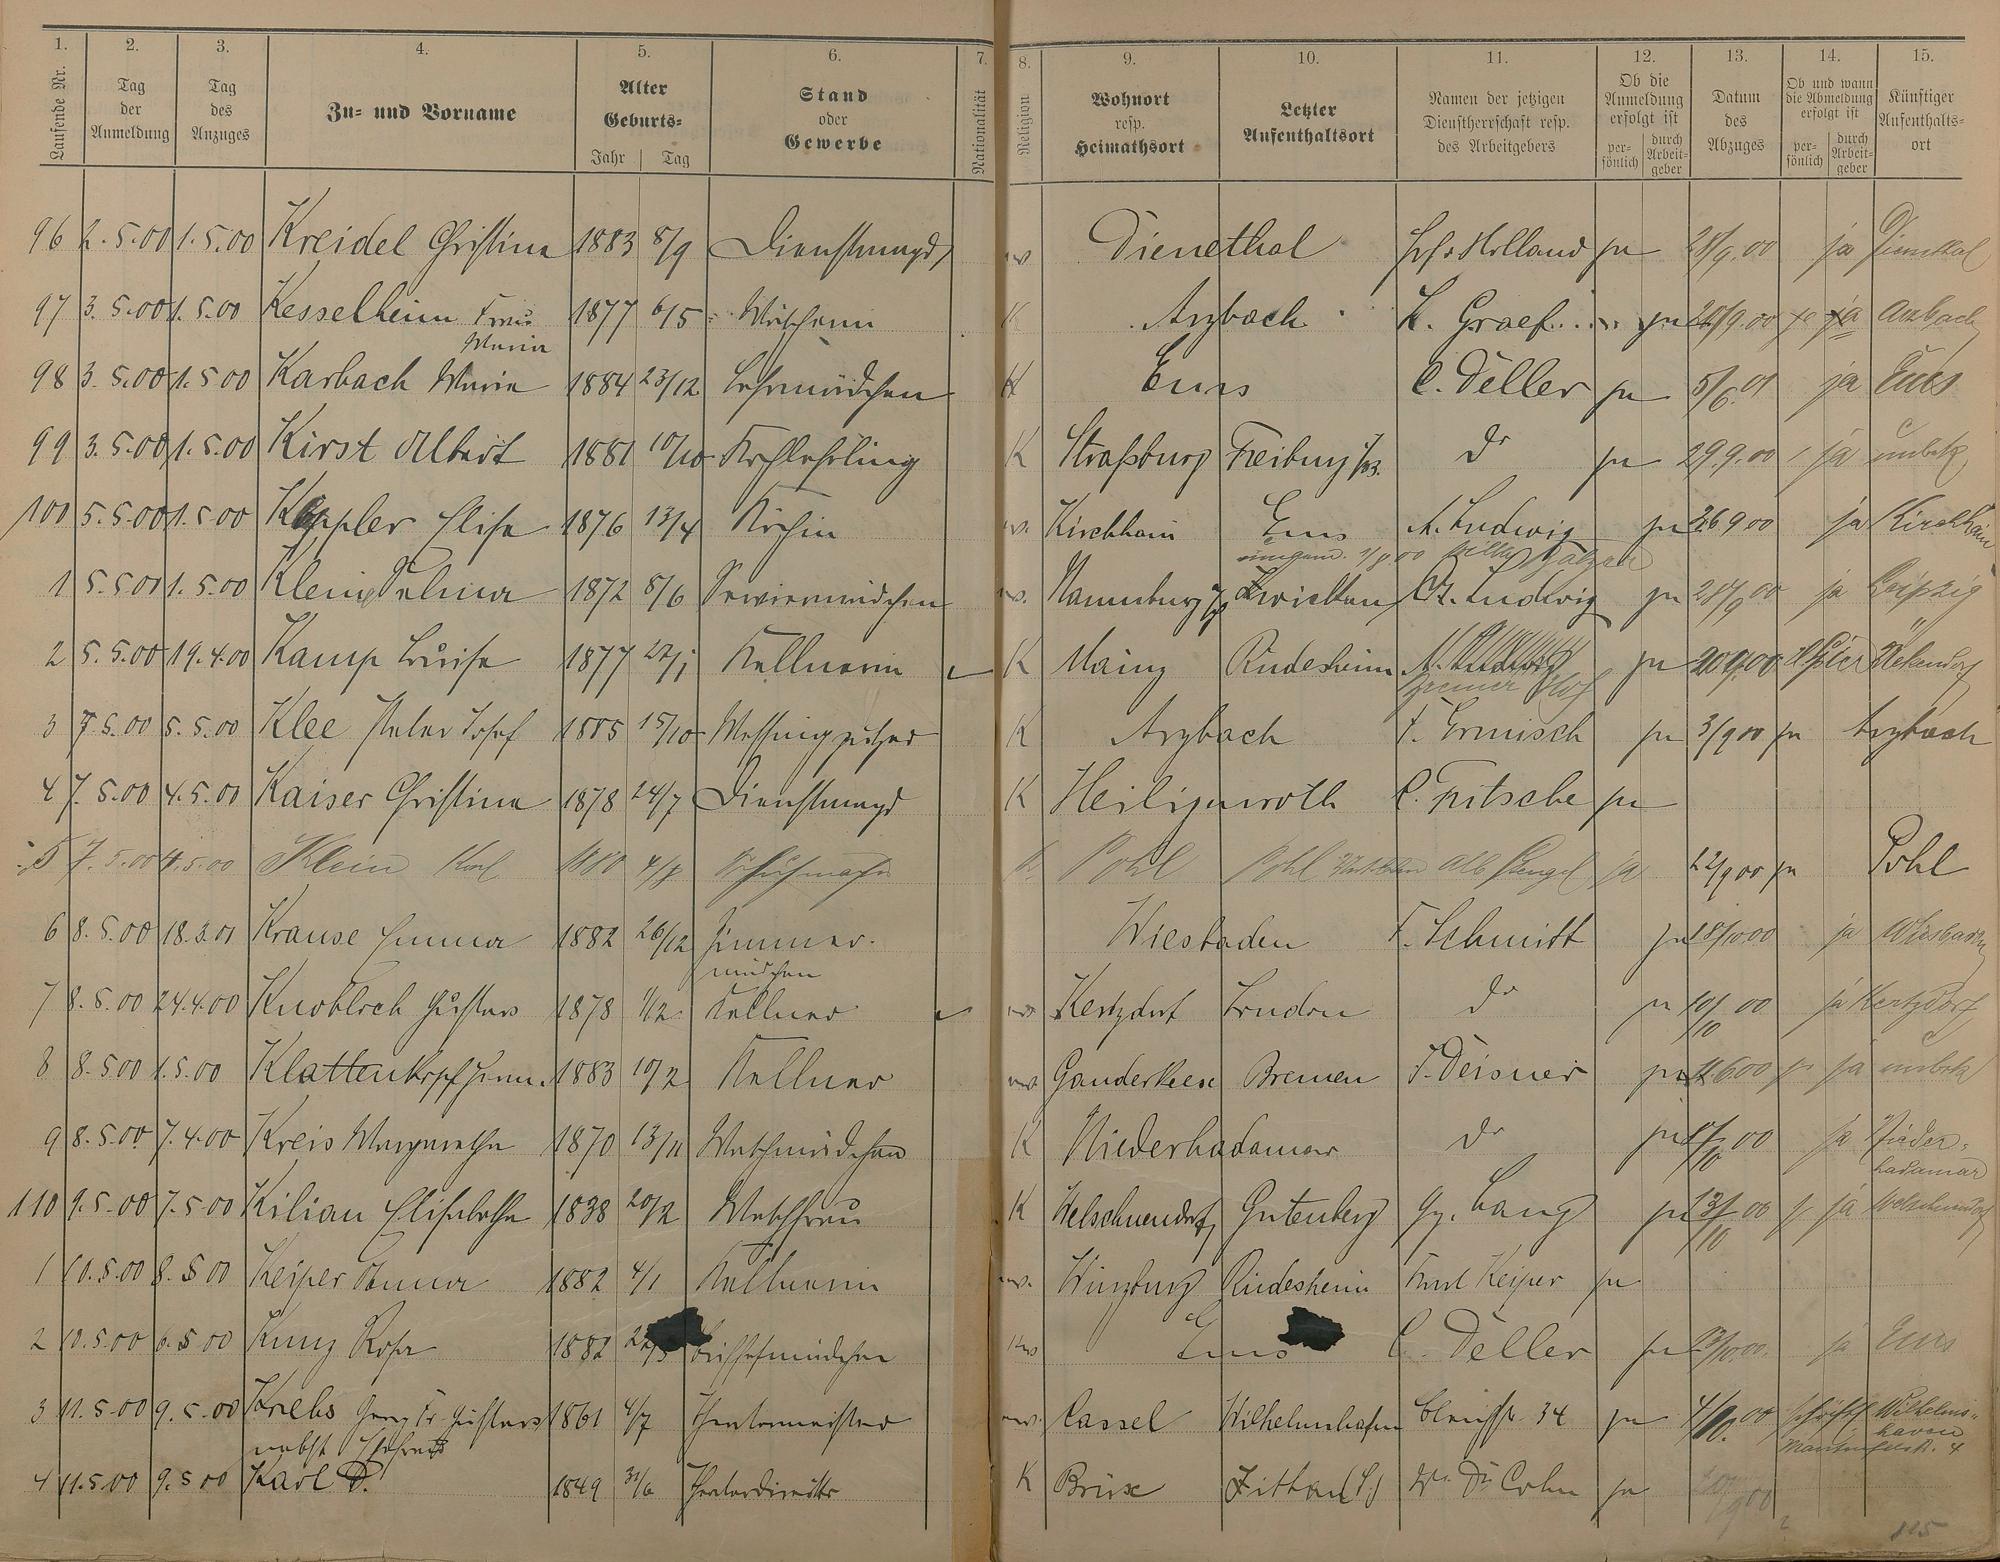 1. 2. 3. 4. 5. 6. 7. 8. 9. 10. 11. 12. 13. 14. 15.
Laufende Nr. | Tag der Anmeldung | Tag des Anzuges | Zu- und Vorname | Alter Geburts- Jahr | Tag | Stand oder Gewerbe | Nationalität | Religion | Wohnort resp. Heimathsort | Letzter Aufenthaltsort | Namen der jetzigen Dienstherrschaft resp. des Arbeitgebers | Ob die Anmeldung erfolgt ist persönlich | durch Arbeitgeber | Datum des Abzuges | Ob und wann die Abmeldung erfolgt ist persönlich | durch Arbeitgeber | Künftiger Aufenthaltsort
96 2.5.00 1.5.00 Kreidel Christine 1883 8/9 Dienstmagd Dienethal Holland ja 28/9.00 ja Dienethal
97 3.5.00 1.5.00 Kesselheim Frau Maria 1877 6/5 Wäscherin K Arzbach K. Graef ja 28/9.00 ja Arzbach
98 3.5.00 1.5.00 Karbach Maria 1884 23/12 Lehrmädchen K Ems C. Deller ja 5/6.01 ja Ems
99 3.5.00 1.5.00 Kirst Albert 1881 10/10 Kochlehrling K Straßburg Freiburg i/B. do ja 29.9.00 ja unbek
100 5.5.00 1.5.00 Keppler Elise 1876 13/4 Köchin Kirchhain Ems A. Ludwig ja 26.9.00 ja Kirchhain
1 5.5.00 1.5.00 Klein 1872 8/6 Serviermädchen Naumburg Zwickau A. Ludwig ja 28/9.00 ja Leipzig
2 5.5.00 19.4.00 Kamp Luise 1877 27/1 Kellnerin K Mainz Rüdesheim A. Ludwig ja
3 7.5.00 5.5.00 Klee Peter Josef 1885 15/10 Messingputzer K Arzbach F. Ermisch ja 3/9 00 ja Arzbach
4 7.5.00 4.5.00 Kaiser Christine 1878 24/7 Dienstmagd K Heiligenroth C. Fritsche ja
5 7.5.00 4.5.00 Klein Karl 1880 4/8 K Pohl Pohl Alb ja 22/9 00 ja Pohl
6 8.5.00 18.3.01 Krause Emma 1882 26/12 Zimmermädchen Wiesbaden F. Schmitt ja 18/10 00 ja Wiesbaden
7 8.5.00 24.4.00 Knobloch Gustav 1878 1/12 Kellner Kertzdorf London do ja 10/10 00 ja Kertzdorf
8 8.5.00 1.5.00 Klattenkopf Herm. 1883 10/2 Kellner Ganderkese Bremen F. Deisner ja 6.00 ja unbek
9 8.5.00 7.4.00 Kreis Margarethe 1870 13/11 Waschmädchen K Niederhadamar do ja 00 ja Niederhadamar
110 9.5.00 7.5.00 Kilian Elisabethe 1838 20/2 Waschfrau K Welschneudorf Gutenberg Gg. Lang ja 13/10 00 ja Welschneudorf
1 10.5.00 8.5.00 Keiper Anna 1882 4/1 Kellnerin Würzburg Rüdesheim Karl Keiper ja
2 10.5.00 6.5.00 Kunz Rosa 1882 Ems C. Deller ja ja Ems
3 11.5.00 9.5.00 Krebs Georg Fr. Gustav nebst Ehefrau 1861 4/7 Theatermeister Cassel Wilhelmshafen 34 ja 00 Wilhelmshaven
4 11.5.00 9.5.00 Karl D. 1849 Theaterdirektor K Brüx Zittau (S.) Dr. Cohn ja